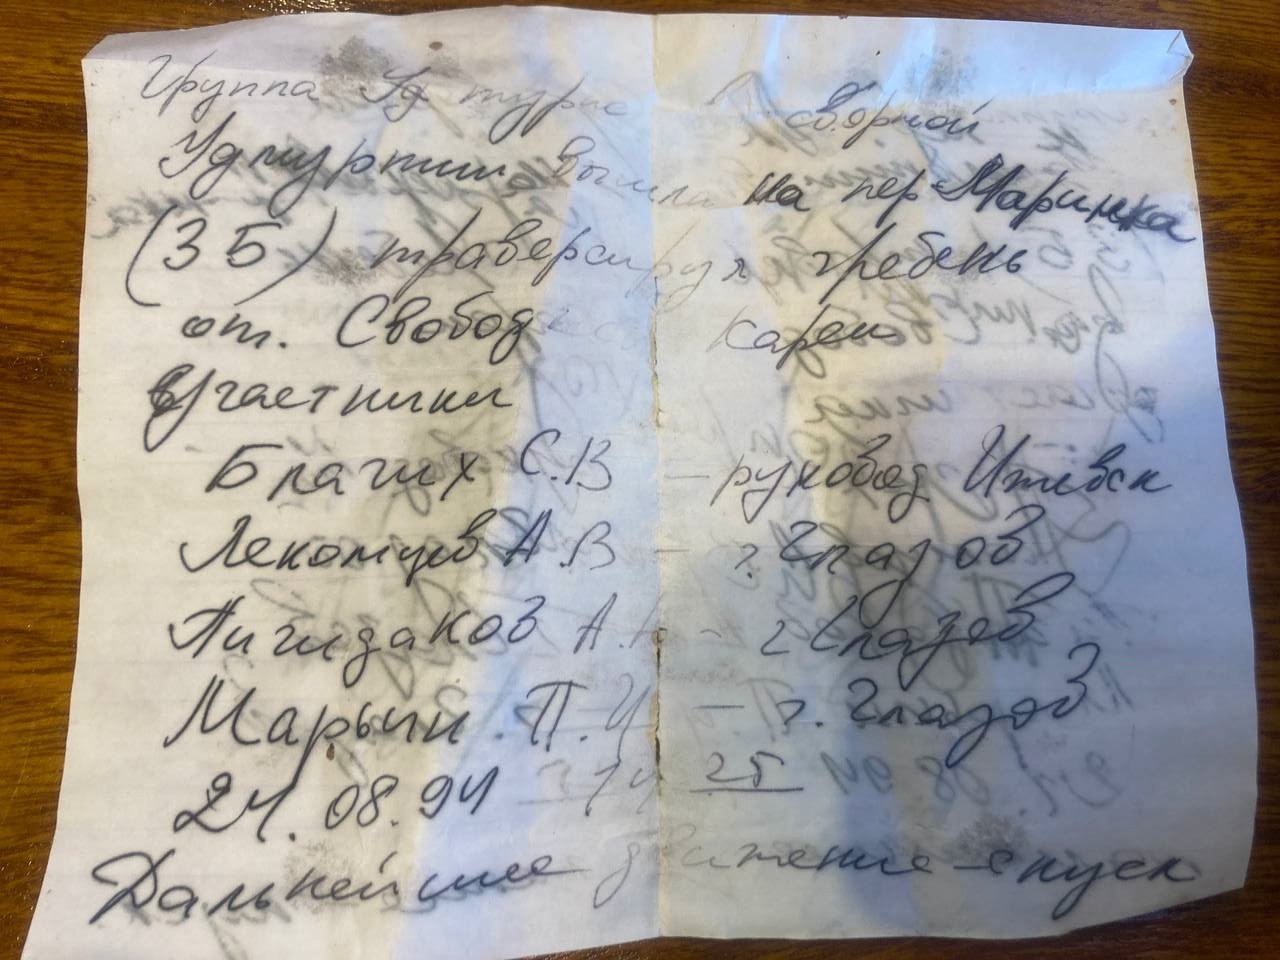 Группа Уд турис сборной
Удмуртии вышла на пер Маринка
(3Б) траверсируя гребень
от. Свобод Карею
Участники
Благих С.В — руковод Ижевск
Лекомцев А.В — г. Глазов
А. — г Глазов
Марьин П.И — г. Глазов
24.08.94 14 25
Дальнейшее движение – спуск